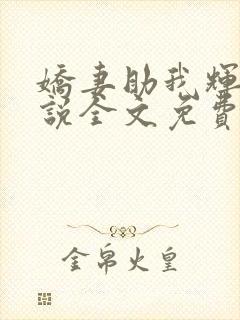 嬌妻助我輝
說全文免費
金帛火皇